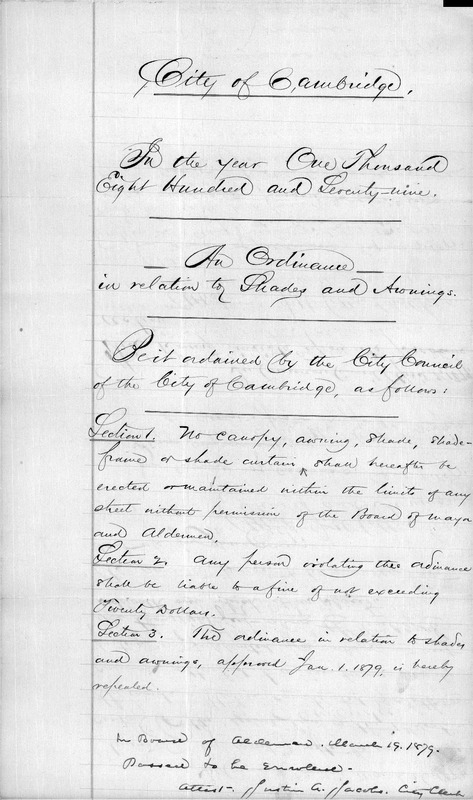 City of Cambridge.
In the year One Thousand
Eight Hundred and Seventy-nine.
An Ordinance
in relation to Shades and Awnings.
Be it ordained by the City Council
of the City of Cambridge, as follows:
Section 1. No canopy, awning, shade, shade-
frame or shade curtain, shall hereafter be
erected or maintained within the limits of any
street without permission of the Board of Mayor
and Aldermen.
Section 2. Any person violating this ordinance
shall be liable to a fine of not exceeding
Twenty Dollars.
Section 3. The ordinance in relation to shades
and awnings, approved Jan. 1. 1879, is hereby
repealed.
In Board of Aldermen. March 19. 1879.
Passed to be Enrolled.
Attest. Justin A. Jacobs. City Clerk